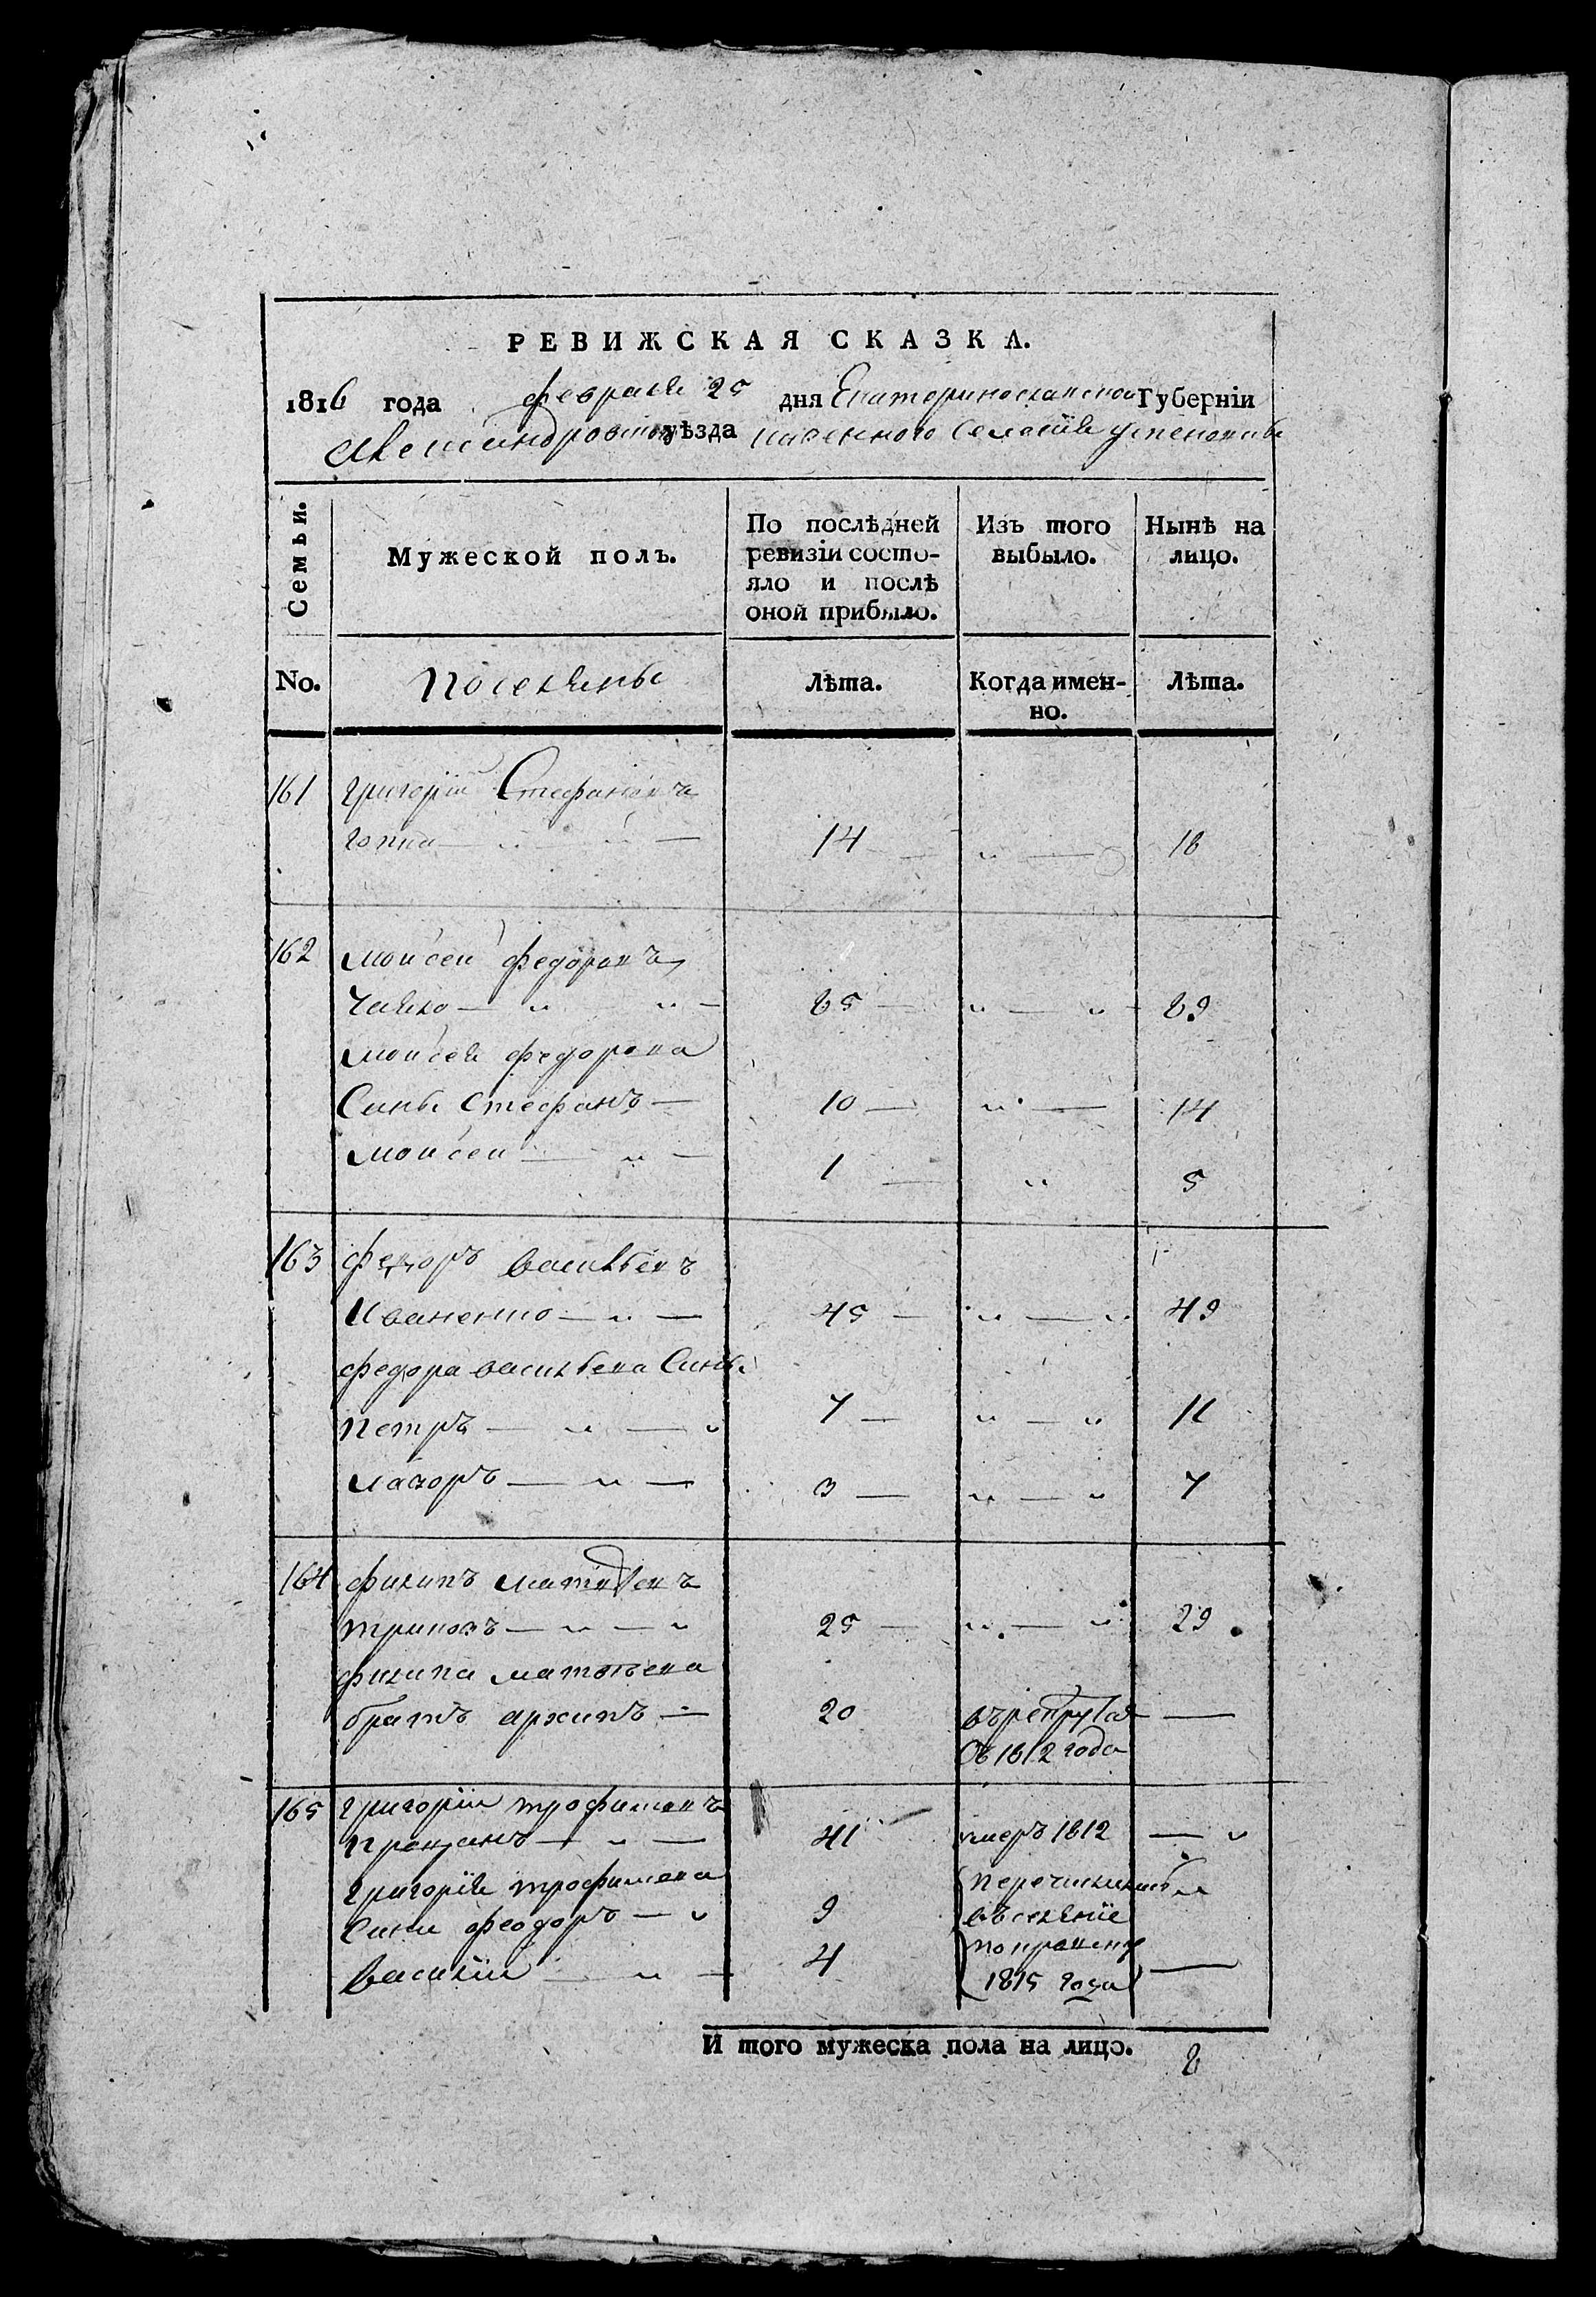 РЕВИЖСКАЯ СКАЗКА.
1816 года февраля 25 дня Екатеринославской Губерніи
Александровскаго уѣзда казенного Селенія
Семьи.
Мужеской полъ.
По послѣдней ревизіи состояло и послѣ оной прибыло.
Изъ того выбыло.
Нынѣ на лицо.
No.
Поселяны
Лѣта.
Когда именно.
Лѣта.
161 Григорій Стефановъ
14 18
162 Моисей Федоровъ
Чайко 85 89
Моисея Федорова
Сыны Стефанъ 10 14
Моисей 1 5
163 Федоръ Васильевъ
Иваненко 45 49
Федора Васильева Сыны
Петръ 7 11
3 7
164 Филипъ Матвѣевъ
25 29
Филипа Матвѣева
братъ Архипъ 20 въ рекрутахъ
Съ 1812 года
165 Григорій Трофимовъ
41 умеръ 1812
Григорія Трофимова
Сыны Феодоръ 9
въ селеніе
Василій 4
1815 года
И того мужеска пола на лицо. 8